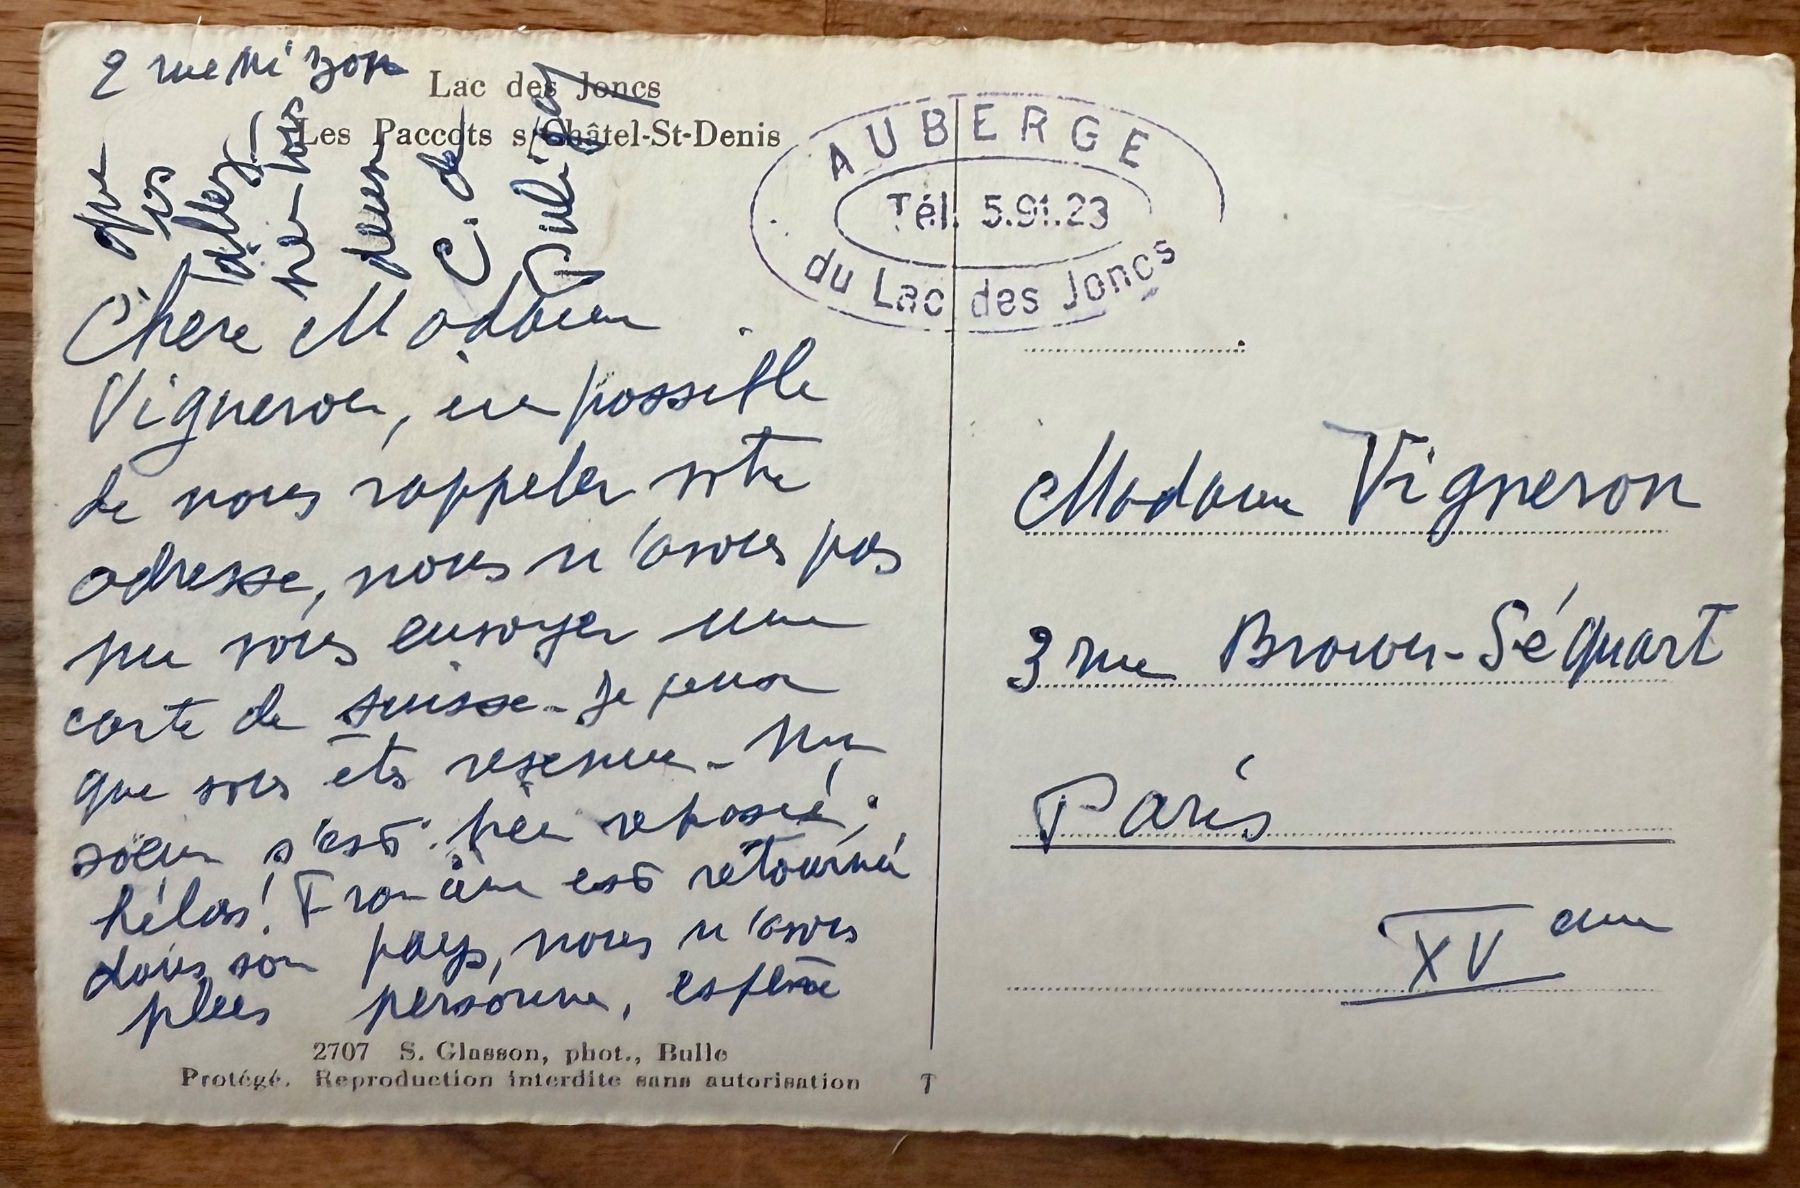 2 rue Mizon
Lac des Joncs
Les Paccots s/Châtel-St-Denis
AUBERGE
Tél. 5.91.23
du Lac des Joncs
Chère Madame
Vigneron, impossible
de nous rappeler votre
adresse, nous n'avons pas
pu vous envoyer une
carte de suisse - Je pense
que vous êtes revenue - Ma
sœur s'est bien reposée,
hélas! est retourné
dans son pays, nous n'avons
plus personne, espère
que
vs
allez
tous
deux
C. de
2707 S. Glasson, phot., Bulle
Protégé. Reproduction interdite sans autorisation
T
Madame Vigneron
3 rue Brown-Séquart
Paris
XV eme